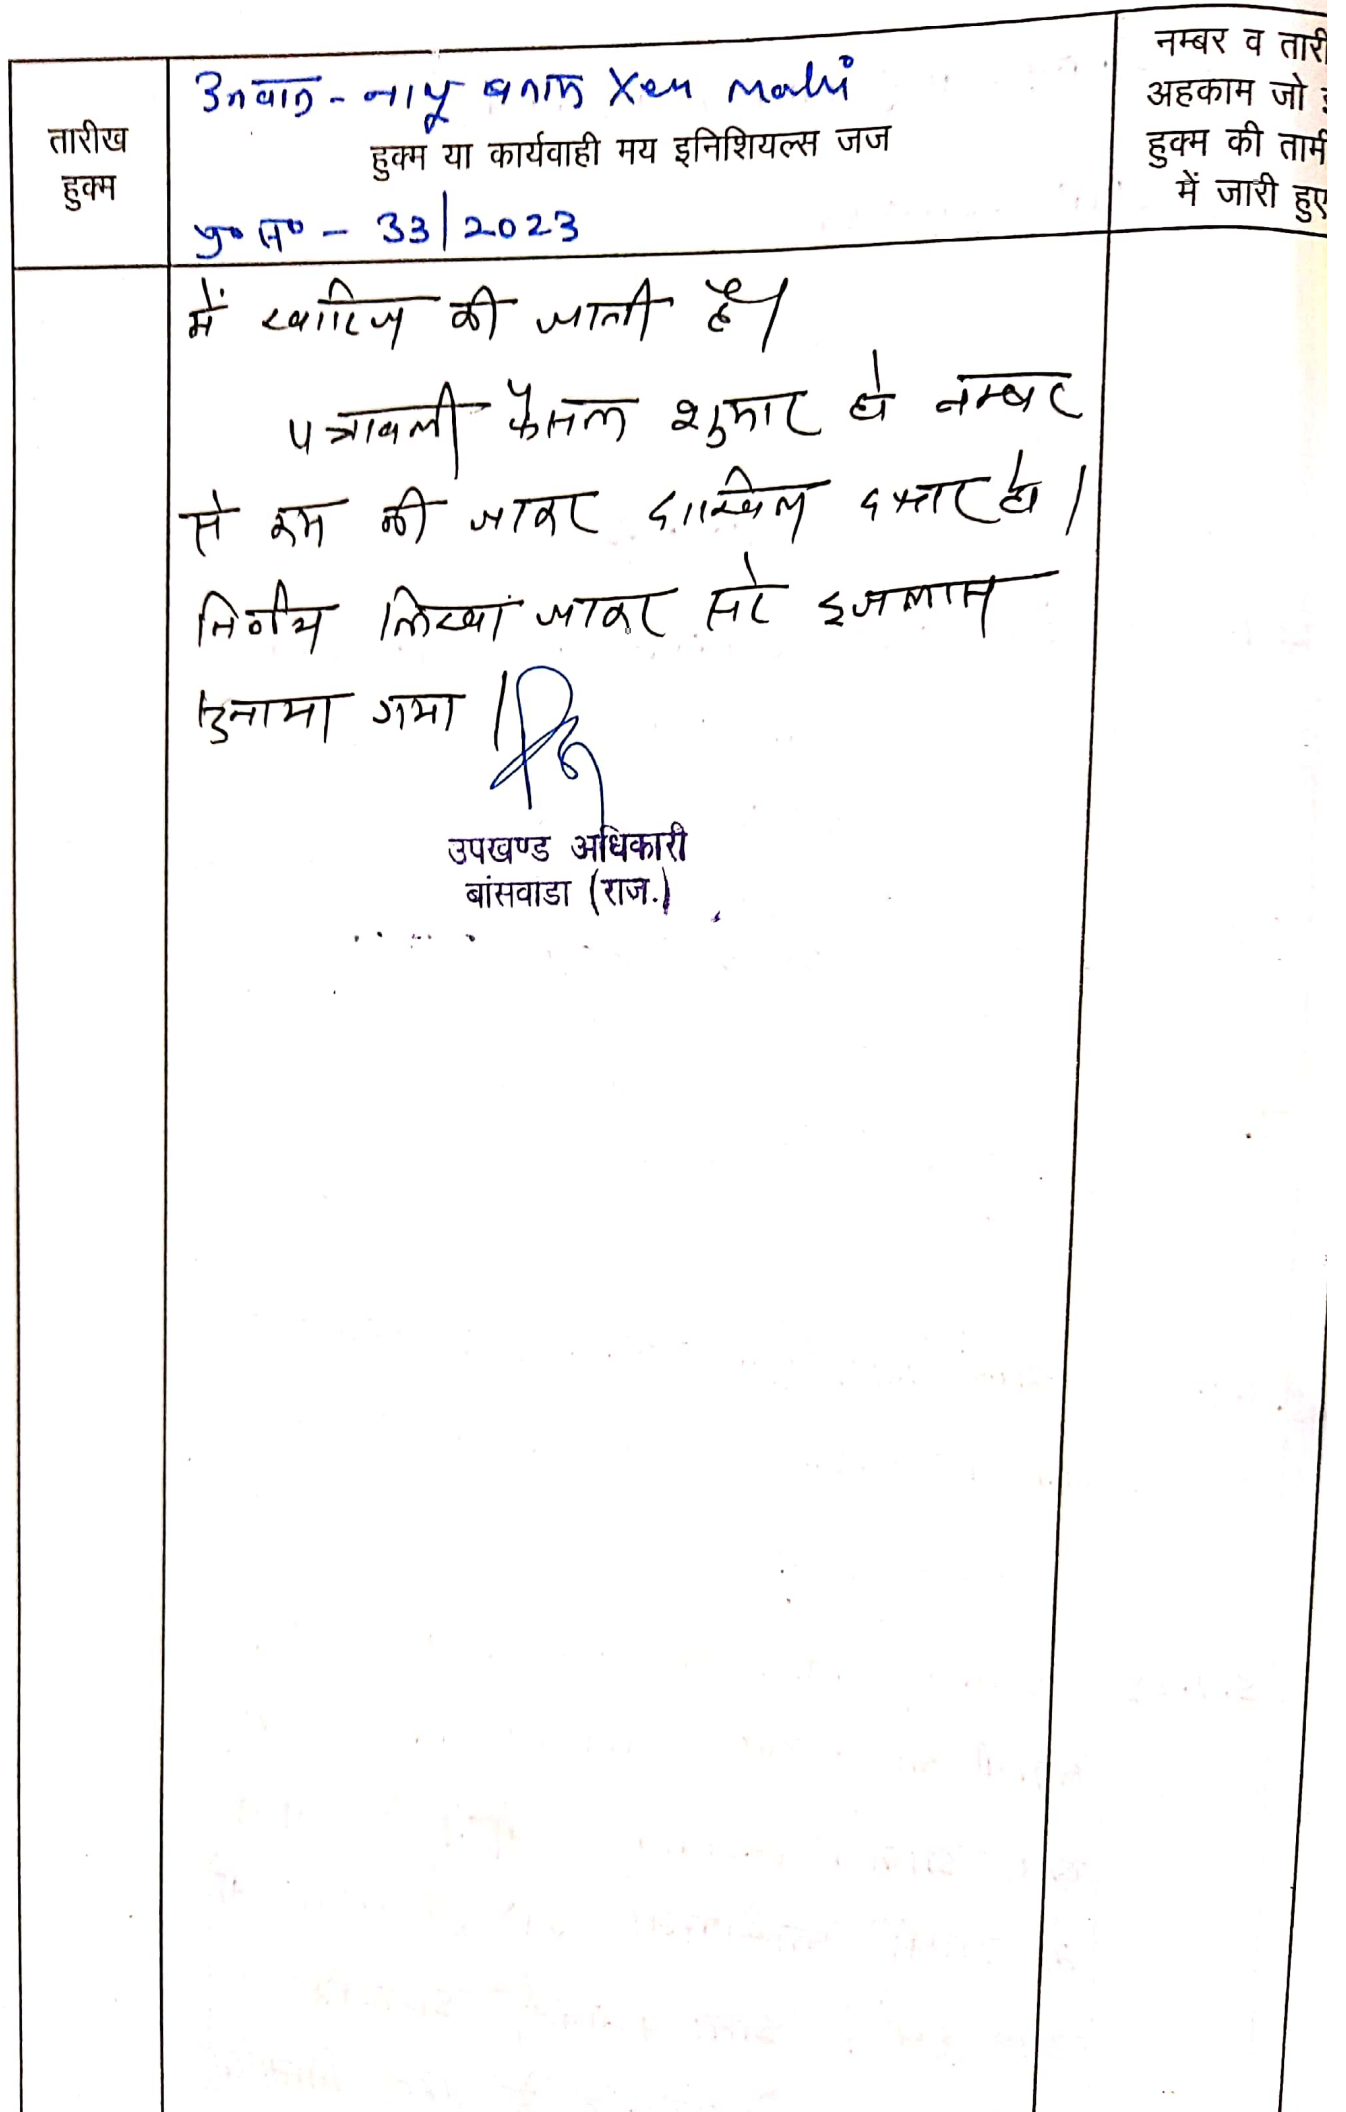 उनवान - नाथू बनाम Xen Mahi
तारीख
हुक्म
हुक्म या कार्यवाही मय इनिशियल्स जज
प्र० सं० - 33/2023
नम्बर व तारी
अहकाम जो इ
हुक्म की तामी
में जारी हुए
में खारिज की जाती है।
पत्रावली फैसल शुमार हो नम्बर
से कम की जाकर दाखिल दफ्तर हो।
निर्णय लिखा जाकर सरे इजलास
सुनाया गया।
उपखण्ड अधिकारी
बांसवाडा (राज.)